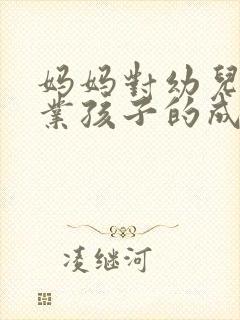 妈妈對幼兒
業孩子的成
凌继河